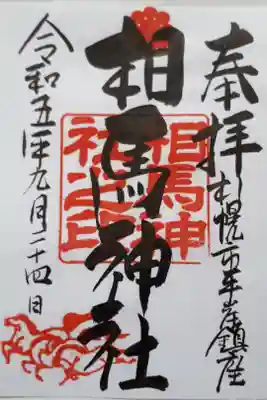 奉拝
札幌市平岸鎮座
相馬神社
相馬神社之印
令和五年九月二十四日